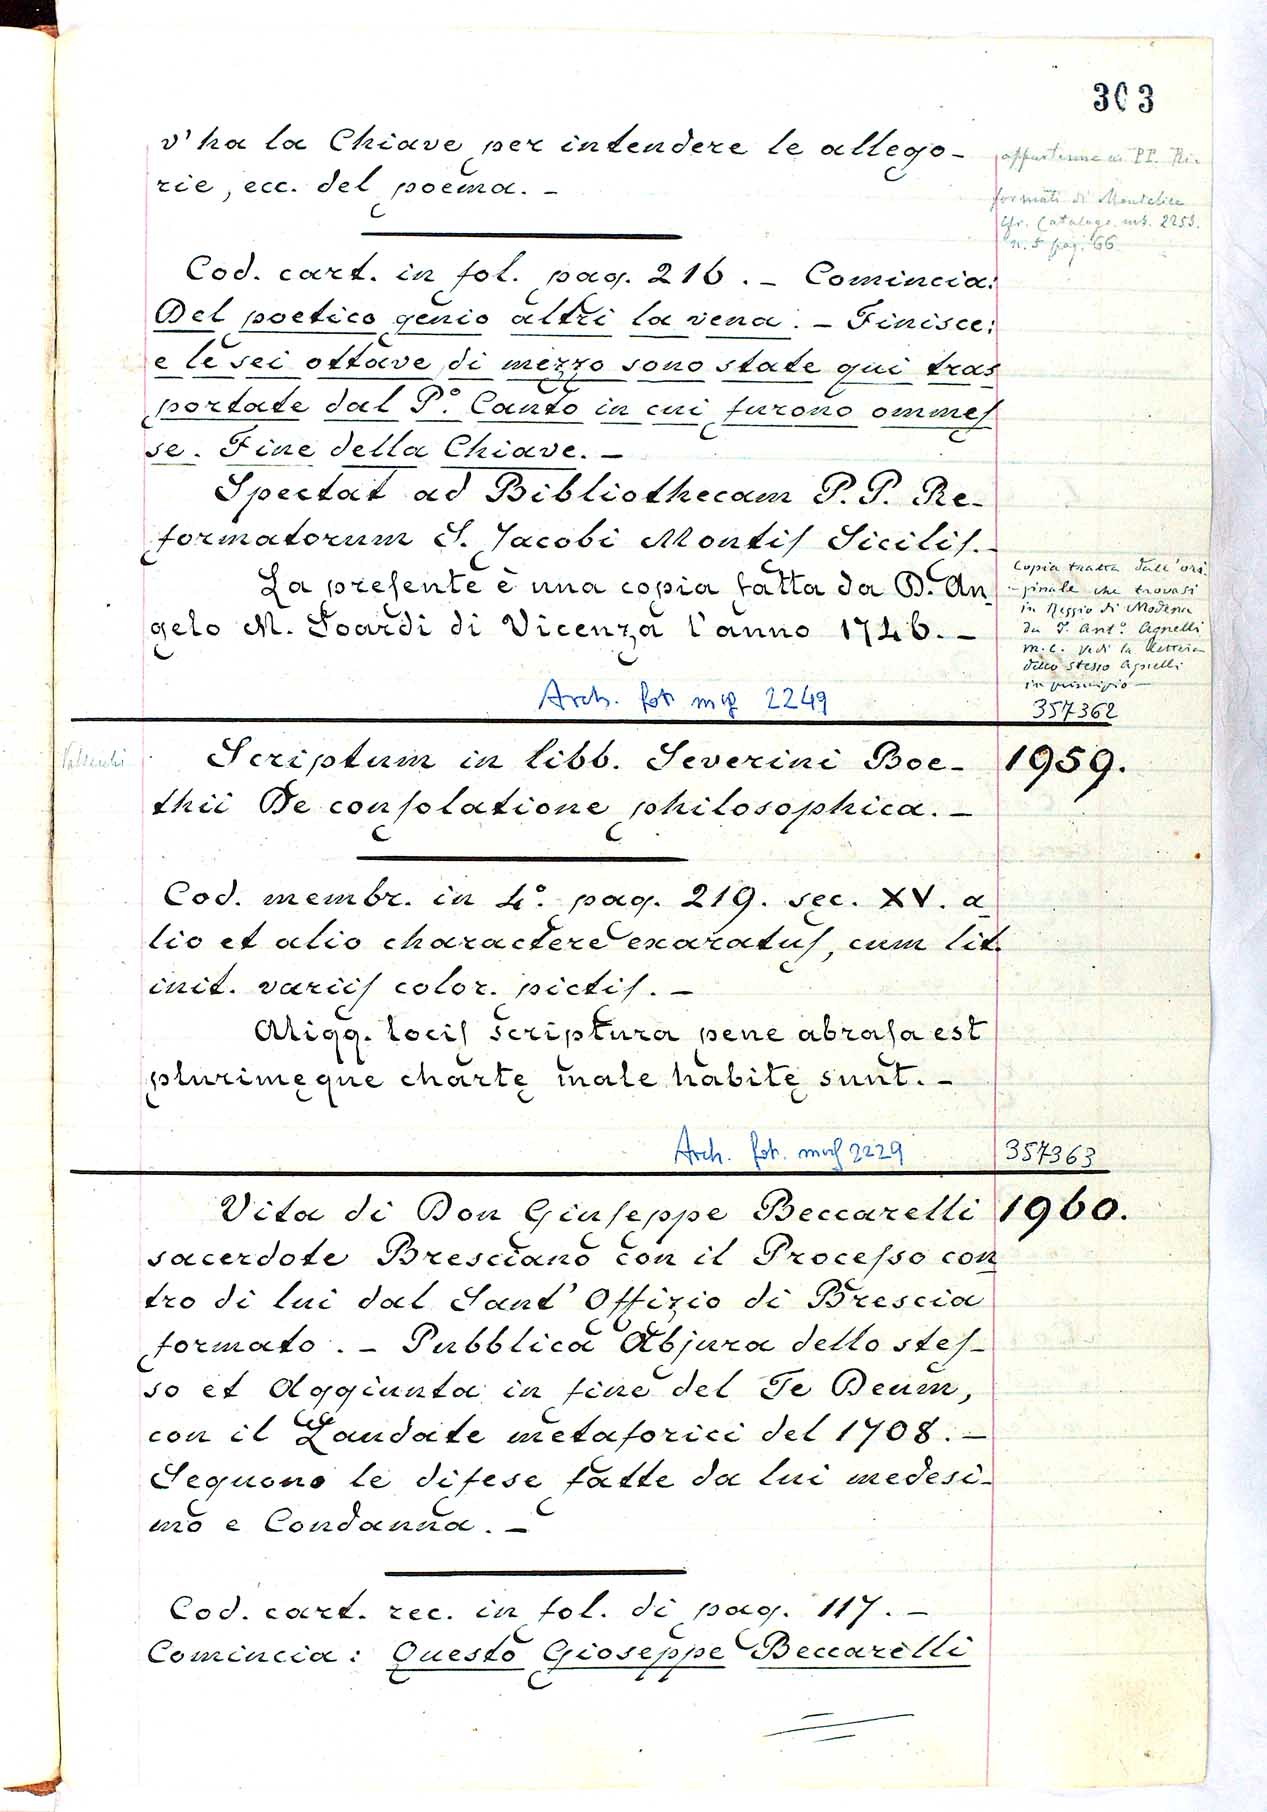 303
v' ha la Chiave per intendere le allego-
rie, ecc. del poema. -
appartenne ai PP. Ri-
formati di Montelice
Cfr. Catalogo ms. 2253.
n. 5 pag. 66
Cod. cart. in fol. pag. 216. - Comincia:
Del poetico genio altri la vena. - Finisce:
e le sei ottave di mezzo sono state qui tras
portate dal P.º Canto in cui furono ommeſ
se. Fine della Chiave. -
Spectat ad Bibliothecam P. P. Re-
formatorum S. Jacobi Montiſ Siciliſ. -
La preſente è una copia fatta da D. An-
gelo M. Soardi di Vicenza l'anno 1746. -
Copia tratta dall'ori-
-ginale che trovasi
in Reggio di Modena
da P. Ant.º Agnelli
m. c. vedi la lettera
dello stesso Agnelli
in principio -
Arch. fot. 2249
357362
Scriptum in libb. Severini Boe-
1959.
thii De conſolatione philosophica. -
Cod. membr. in 4.º pag. 219. sec. XV. a
lio et alio charactere exaratuſ, cum lit.
init. variiſ color. pictiſ. -
Aliqq. lociſ scriptura pene abraſa est
plurimęque chartę male habitę sunt. -
Arch. fot. 2229
357363
Vita di Don Giuſeppe Beccarelli
1960.
sacerdote Bresciano con il Proceſso con
tro di lui dal Sant' Offizio di Brescia
formato. - Pubblica Abjura dello steſ-
so et Aggiunta in fine del Te Deum,
con il Laudate metaforici del 1708. -
Seguono le difese fatte da lui medesi-
mo e Condanna. -
Cod. cart. rec. in fol. di pag. 117. -
Comincia: Questo Gioseppe Beccarelli